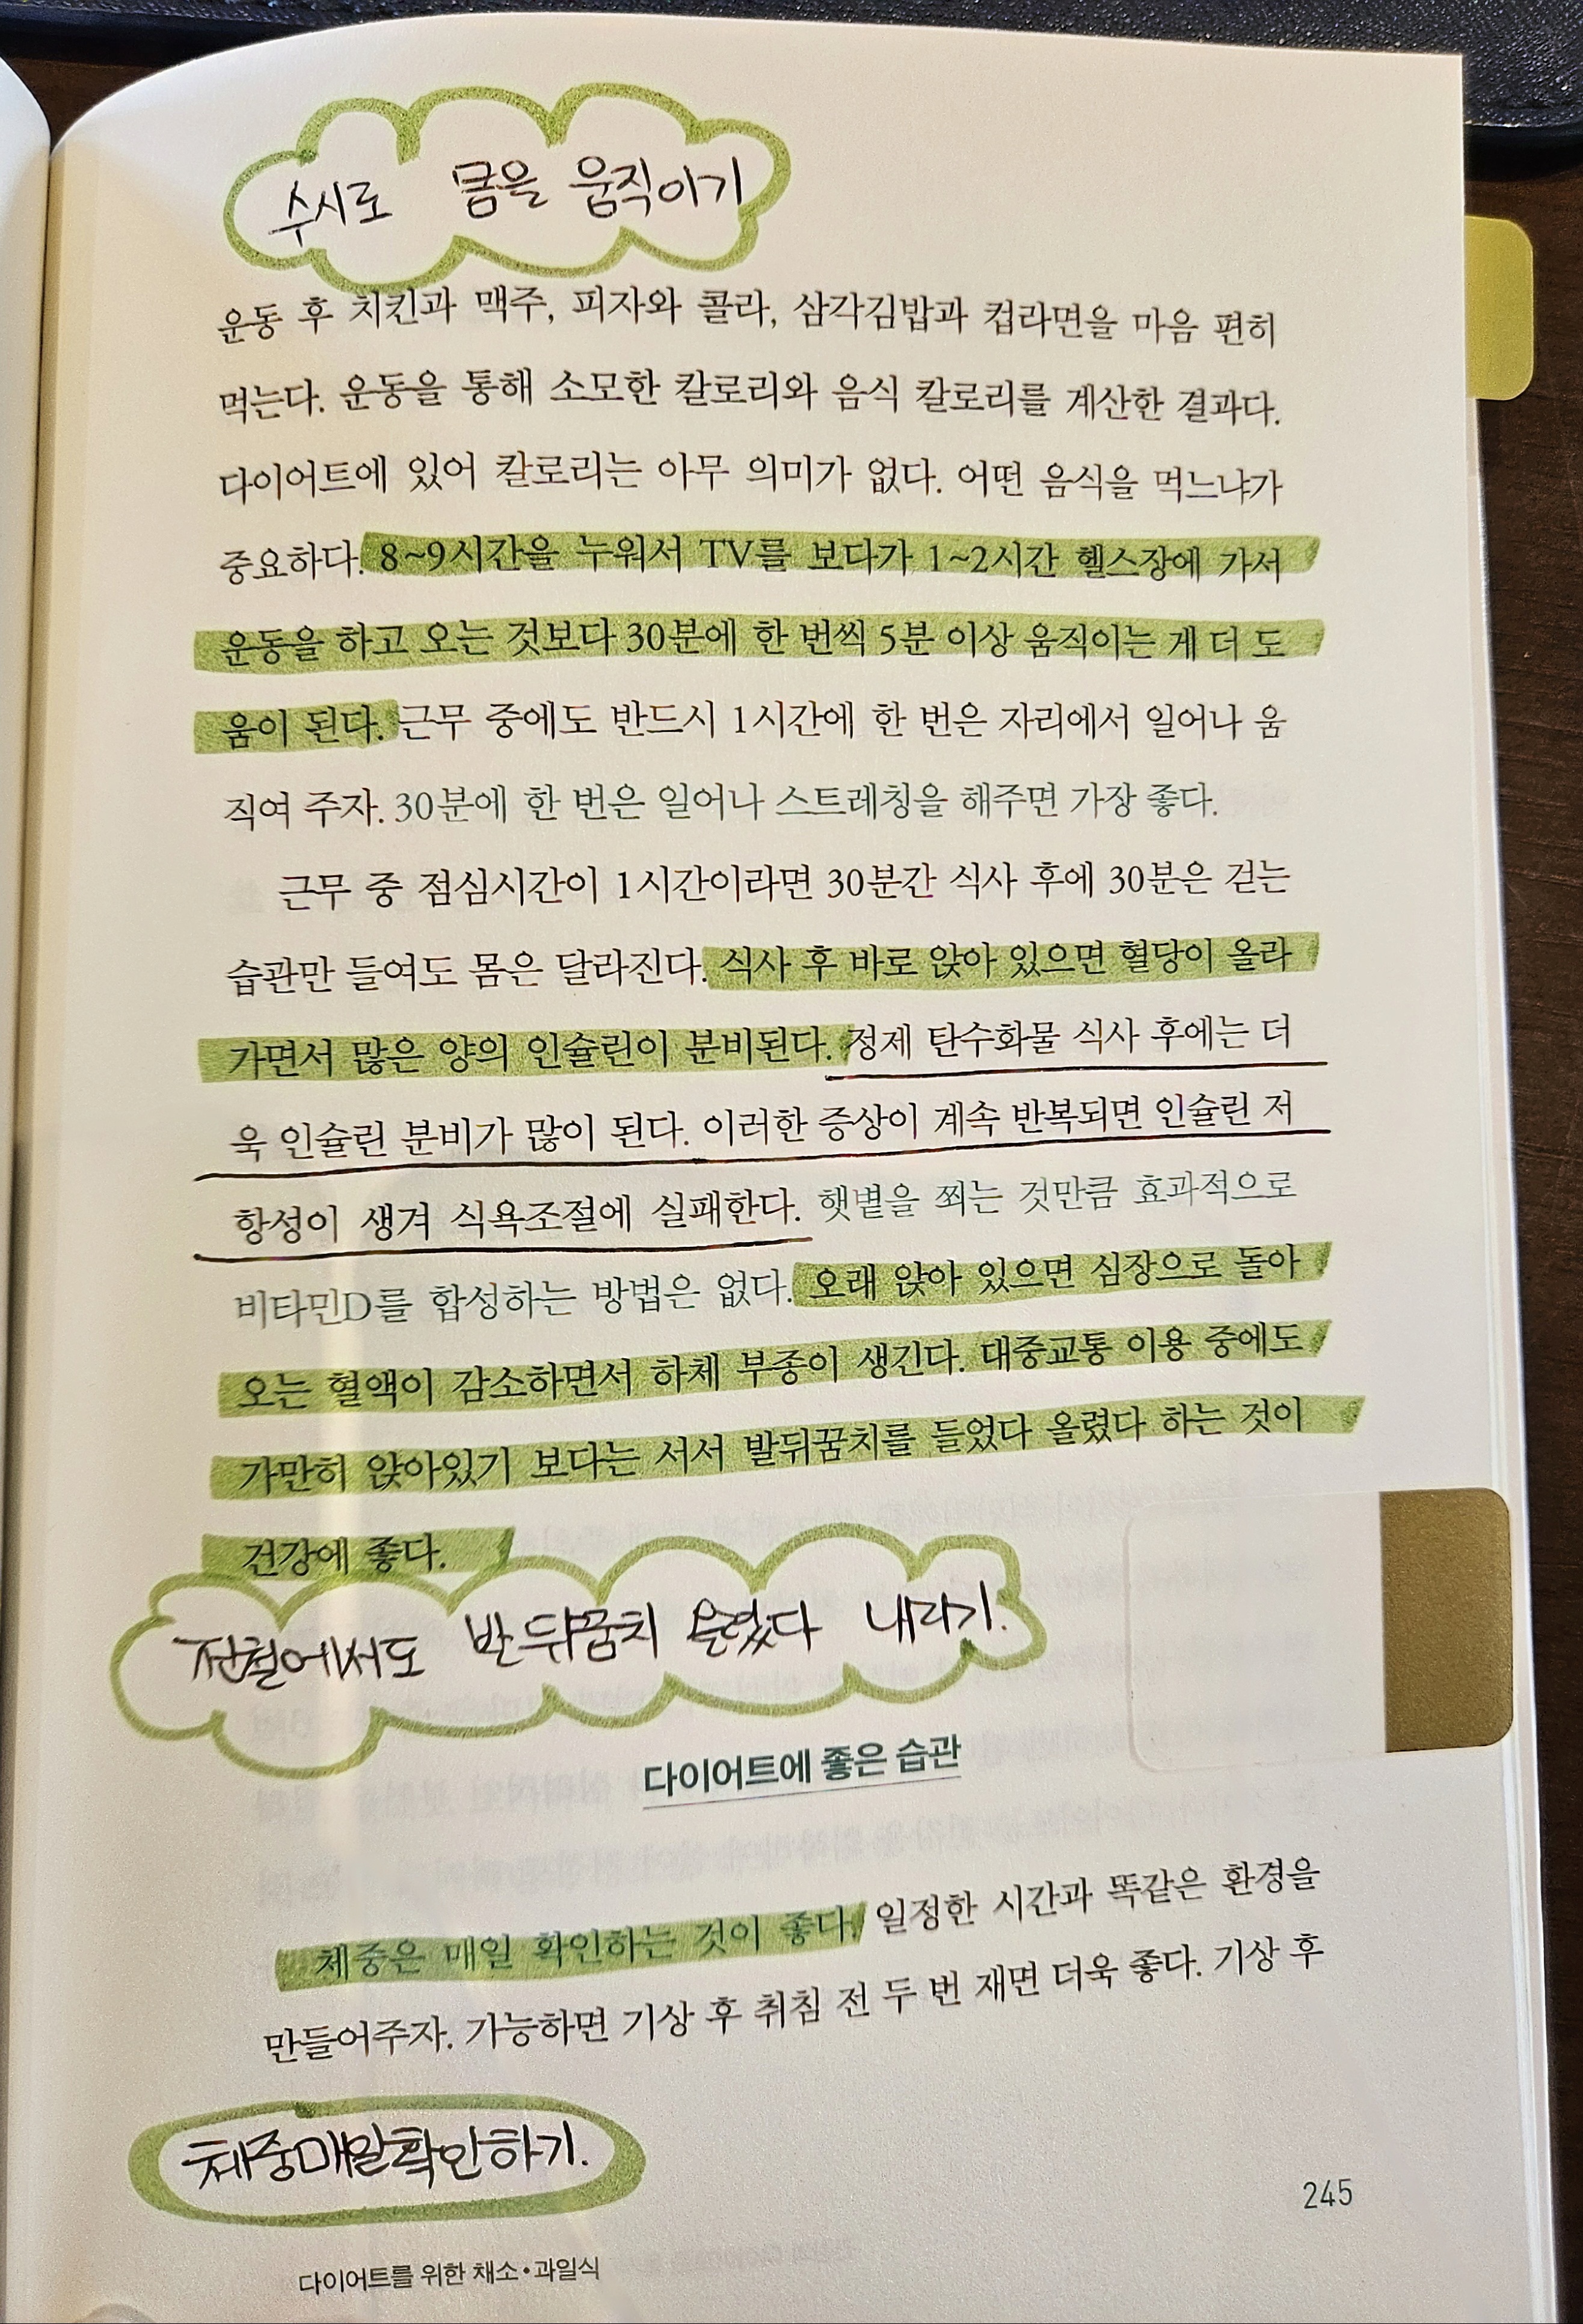 수시로 몸을 움직이기
운동 후 치킨과 맥주, 피자와 콜라, 삼각김밥과 컵라면을 마음 편히
먹는다. 운동을 통해 소모한 칼로리와 음식 칼로리를 계산한 결과다.
다이어트에 있어 칼로리는 아무 의미가 없다. 어떤 음식을 먹느냐가
중요하다. 8~9시간을 누워서 TV를 보다가 1~2시간 헬스장에 가서
운동을 하고 오는 것보다 30분에 한 번씩 5분 이상 움직이는 게 더 도
움이 된다. 근무 중에도 반드시 1시간에 한 번은 자리에서 일어나 움
직여 주자. 30분에 한 번은 일어나 스트레칭을 해주면 가장 좋다.
근무 중 점심시간이 1시간이라면 30분간 식사 후에 30분은 걷는
습관만 들여도 몸은 달라진다. 식사 후 바로 앉아 있으면 혈당이 올라
가면서 많은 양의 인슐린이 분비된다. 정제 탄수화물 식사 후에는 더
욱 인슐린 분비가 많이 된다. 이러한 증상이 계속 반복되면 인슐린 저
항성이 생겨 식욕조절에 실패한다. 햇볕을 쬐는 것만큼 효과적으로
비타민D를 합성하는 방법은 없다. 오래 앉아 있으면 심장으로 돌아
오는 혈액이 감소하면서 하체 부종이 생긴다. 대중교통 이용 중에도
가만히 앉아있기 보다는 서서 발뒤꿈치를 들었다 올렸다 하는 것이
건강에 좋다.
전철에서도 발뒤꿈치 올렸다 내리기.
다이어트에 좋은 습관
체중은 매일 확인하는 것이 좋다. 일정한 시간과 똑같은 환경을
만들어주자. 가능하면 기상 후 취침 전 두 번 재면 더욱 좋다. 기상 후
체중매일확인하기.
245
다이어트를 위한 채소•과일식